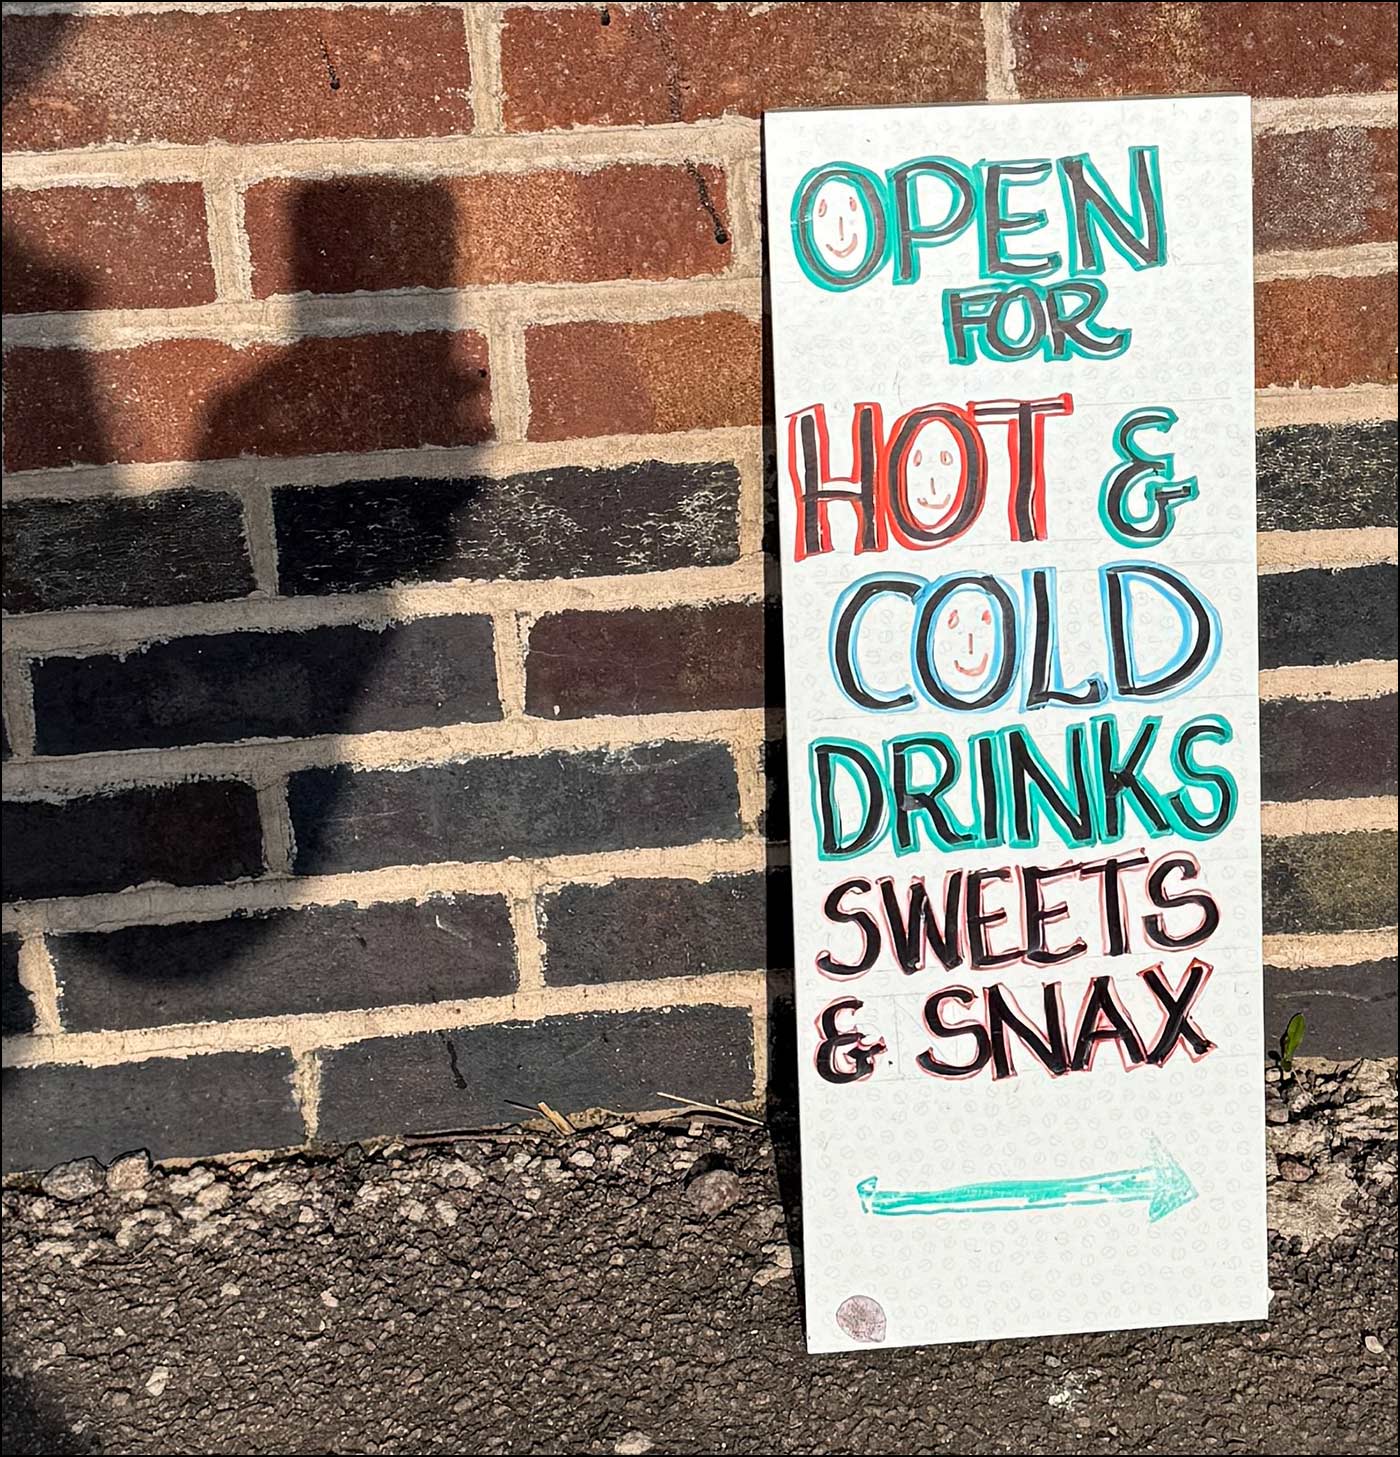 OPEN
FOR
HOT &
COLD
DRINKS
SWEETS
& SNAX